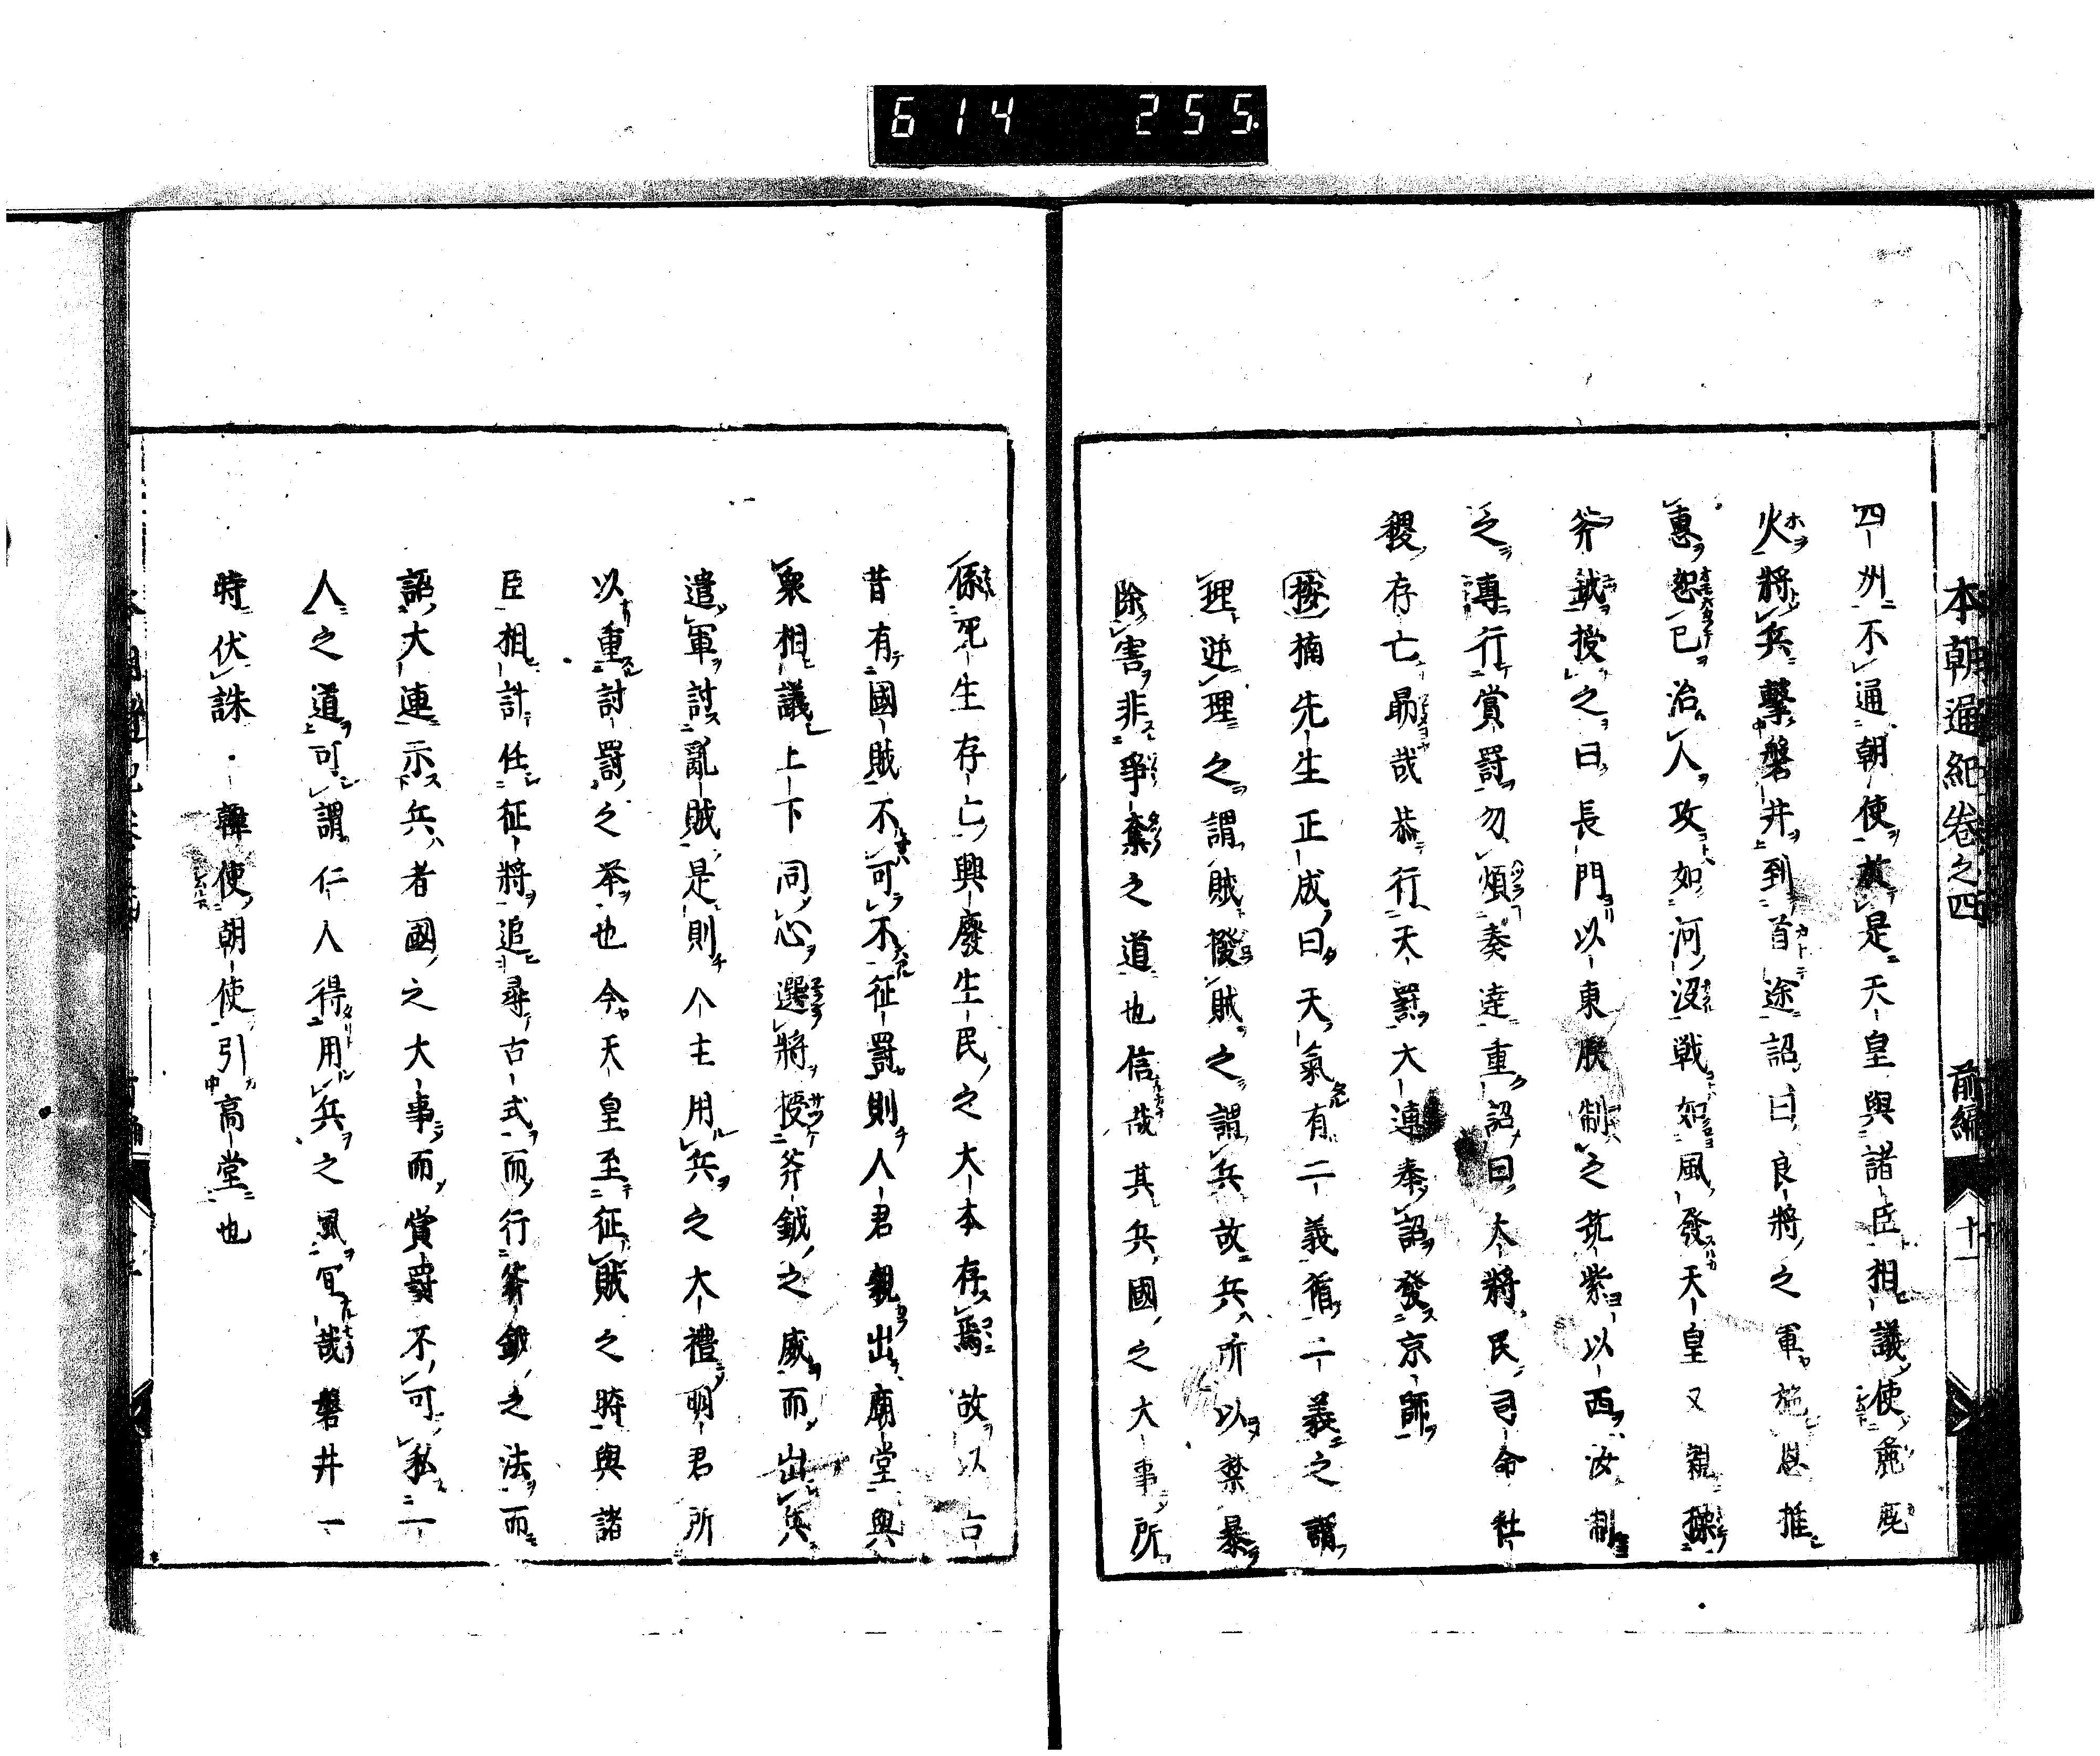 614 255
本朝通紀卷之四 前編 十一
四州不通朝使故是天皇與諸臣相議使麁鹿
火將兵擊磐井到首途詔曰良將之軍施恩推
惠恕己治人攻如河決戰如風發天皇又親操
斧鉞授之曰長門以東朕制之筑紫以西汝制
之專行賞罰勿煩奏達重詔曰大將民司命社
稷存亡勗哉恭行天罰大連奉詔發京師
按楠先生正成曰天氣有二義循二義之謂
理逆理之謂賊撥賊之謂兵故兵所以禁暴
除害非爭奪之道也信哉其兵國之大事所
係死生存亡興廢生民之大本存焉故以古
昔有國賊不可不征罰則人君親出廟堂與
衆相議上下同心選將授斧鉞之威而出兵
遣軍討亂賊是則人主用兵之大禮明君所
以重討罰之举也今天皇至征賊之時與諸
臣相計任征將追尋古式而行斧鉞之法而
詔大連示兵者國之大事而賞爵不可私二
人之道可謂仁人得用兵之風冝哉磐井一
時伏誅韓使朝使引高堂也